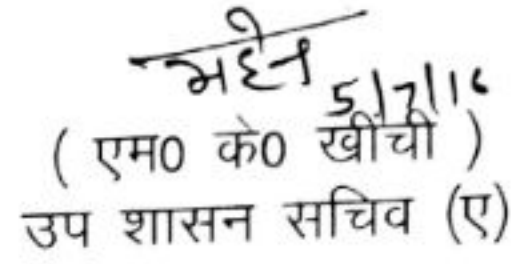 5/7/16
( एम0 के0 खींची )
उप शासन सचिव (ए)